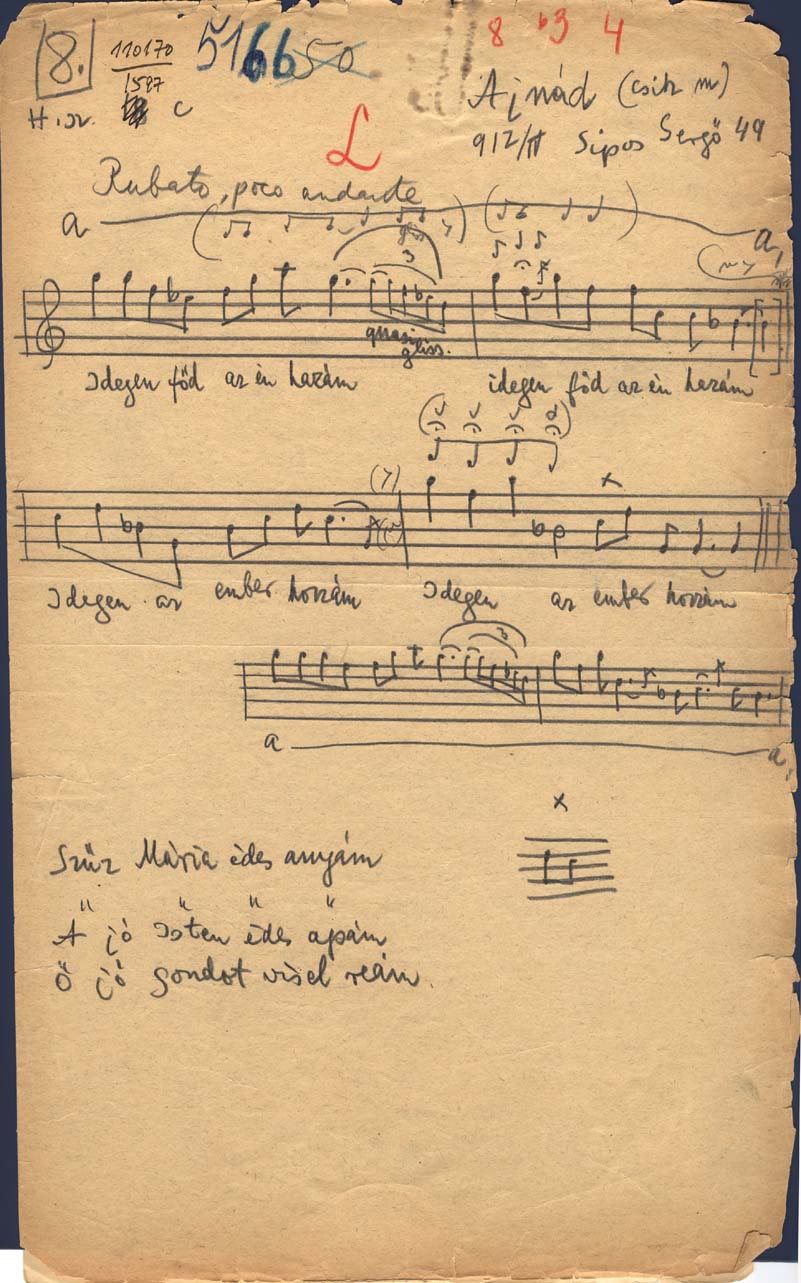 8.
110170
1597
5166
50
8 b3 4
C
L
Ajnád (csik m)
912/II Sipos Sergö 49
Rubato, poco andante
a a,
3
quasi
gliss.
Idegen föd az èn hazám idegen föd az èn hazám
Idegen az ember hozzám Idegen az ember hozzám
3
a a,
x
Szüz Mária èdes anyám
" " " "
A jó Isten èdes apám
Ő jó gondot visel reám.